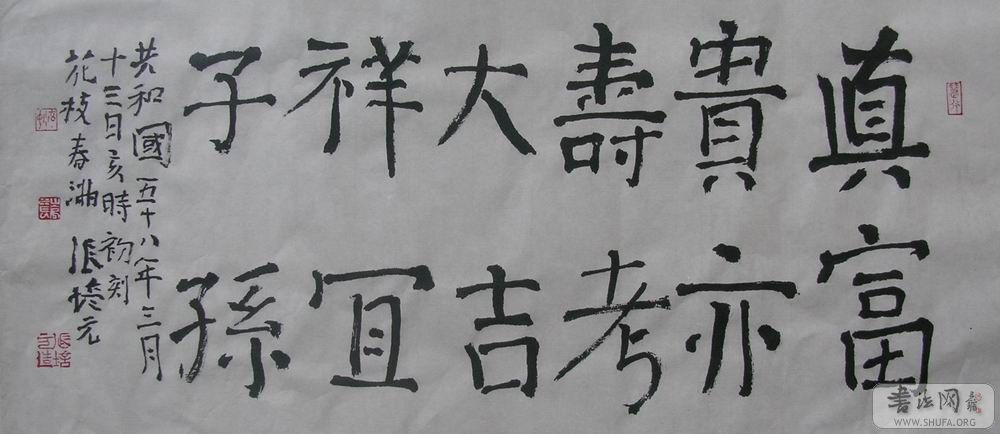 真富
貴亦
壽考
大吉
祥宜
子孫
共和國五十八年三月
十三日亥時初刻
花枝春滿 張培元
書法网
WWW.SHUFA.ORG